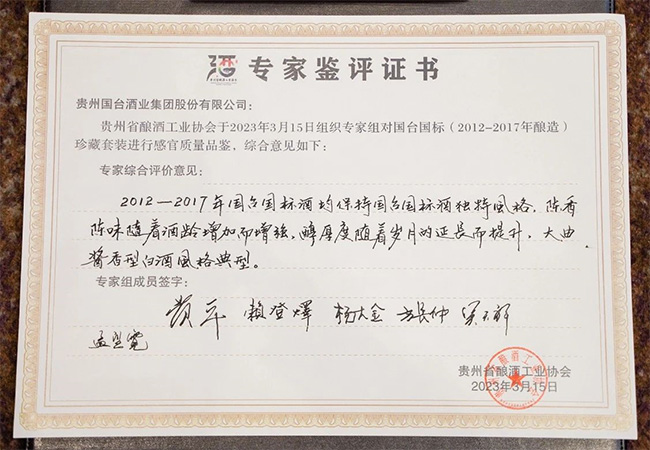 专家鉴评证书
贵州国台酒业集团股份有限公司：
贵州省酿酒工业协会于2023年3月15日组织专家组对国台国标（2012-2017年酿造）
珍藏套装进行感官质量品鉴，综合意见如下：
专家综合评价意见：
2012—2017年国台国标酒均保持国台国标酒独特风格，陈香
陈味随着酒龄增加而增强，醇厚度随着岁月的延长而提升，大曲
酱香型白酒风格典型。
专家组成员签字：
黄平 赖登燡 杨大金
贵州省酿酒工业协会
2023年3月15日